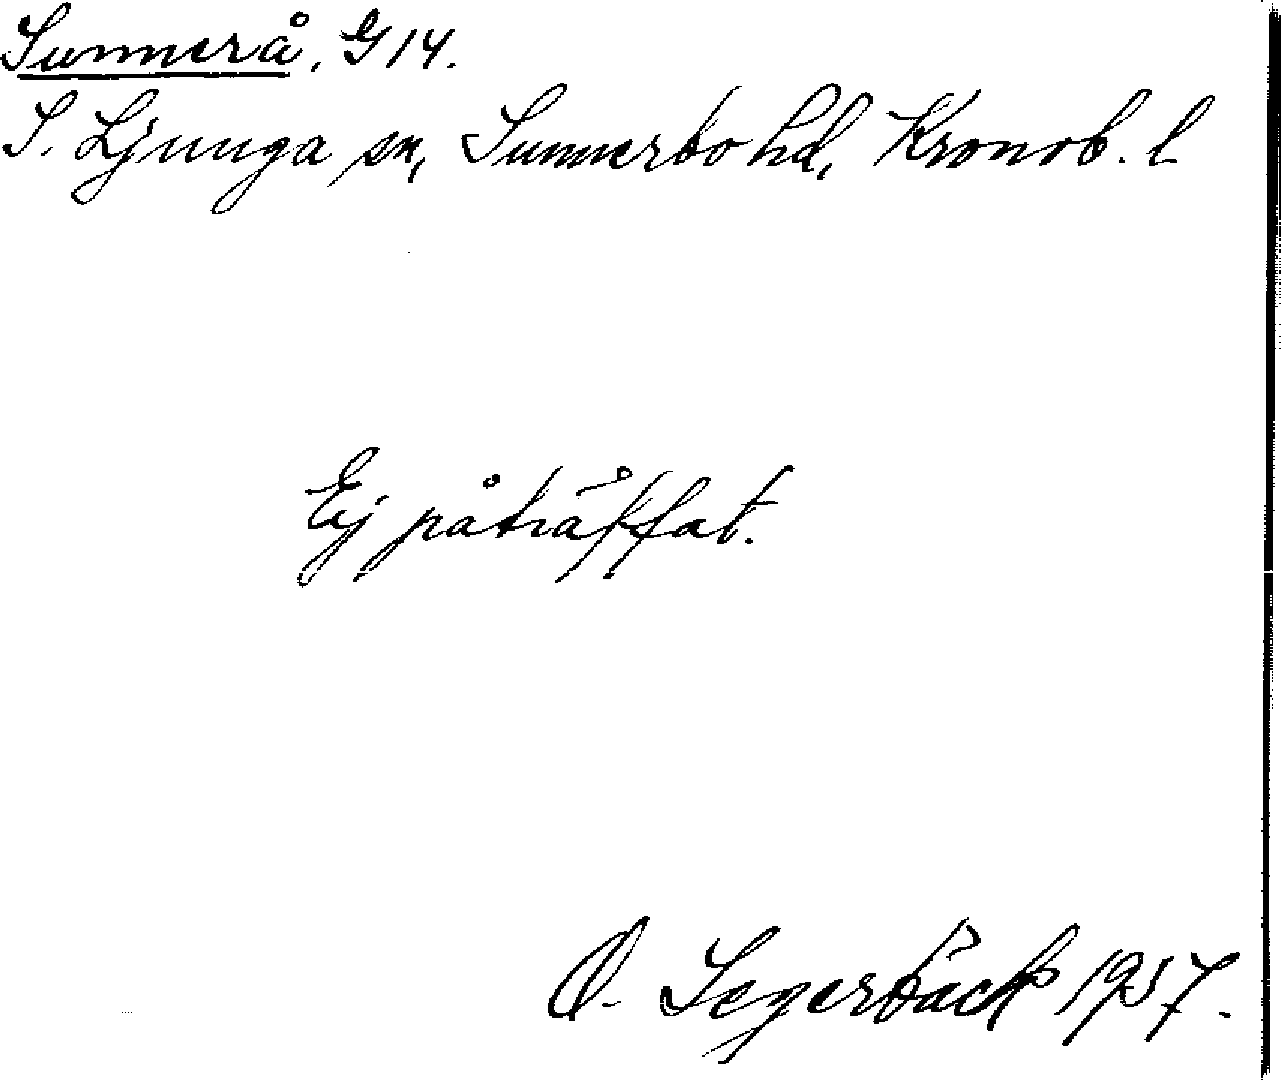 Sunnerå, G 14.
S. Ljunga sn, Sunnerbo hd, Kronob. l
Ej påträffat.
O. Segerbäck 1937.